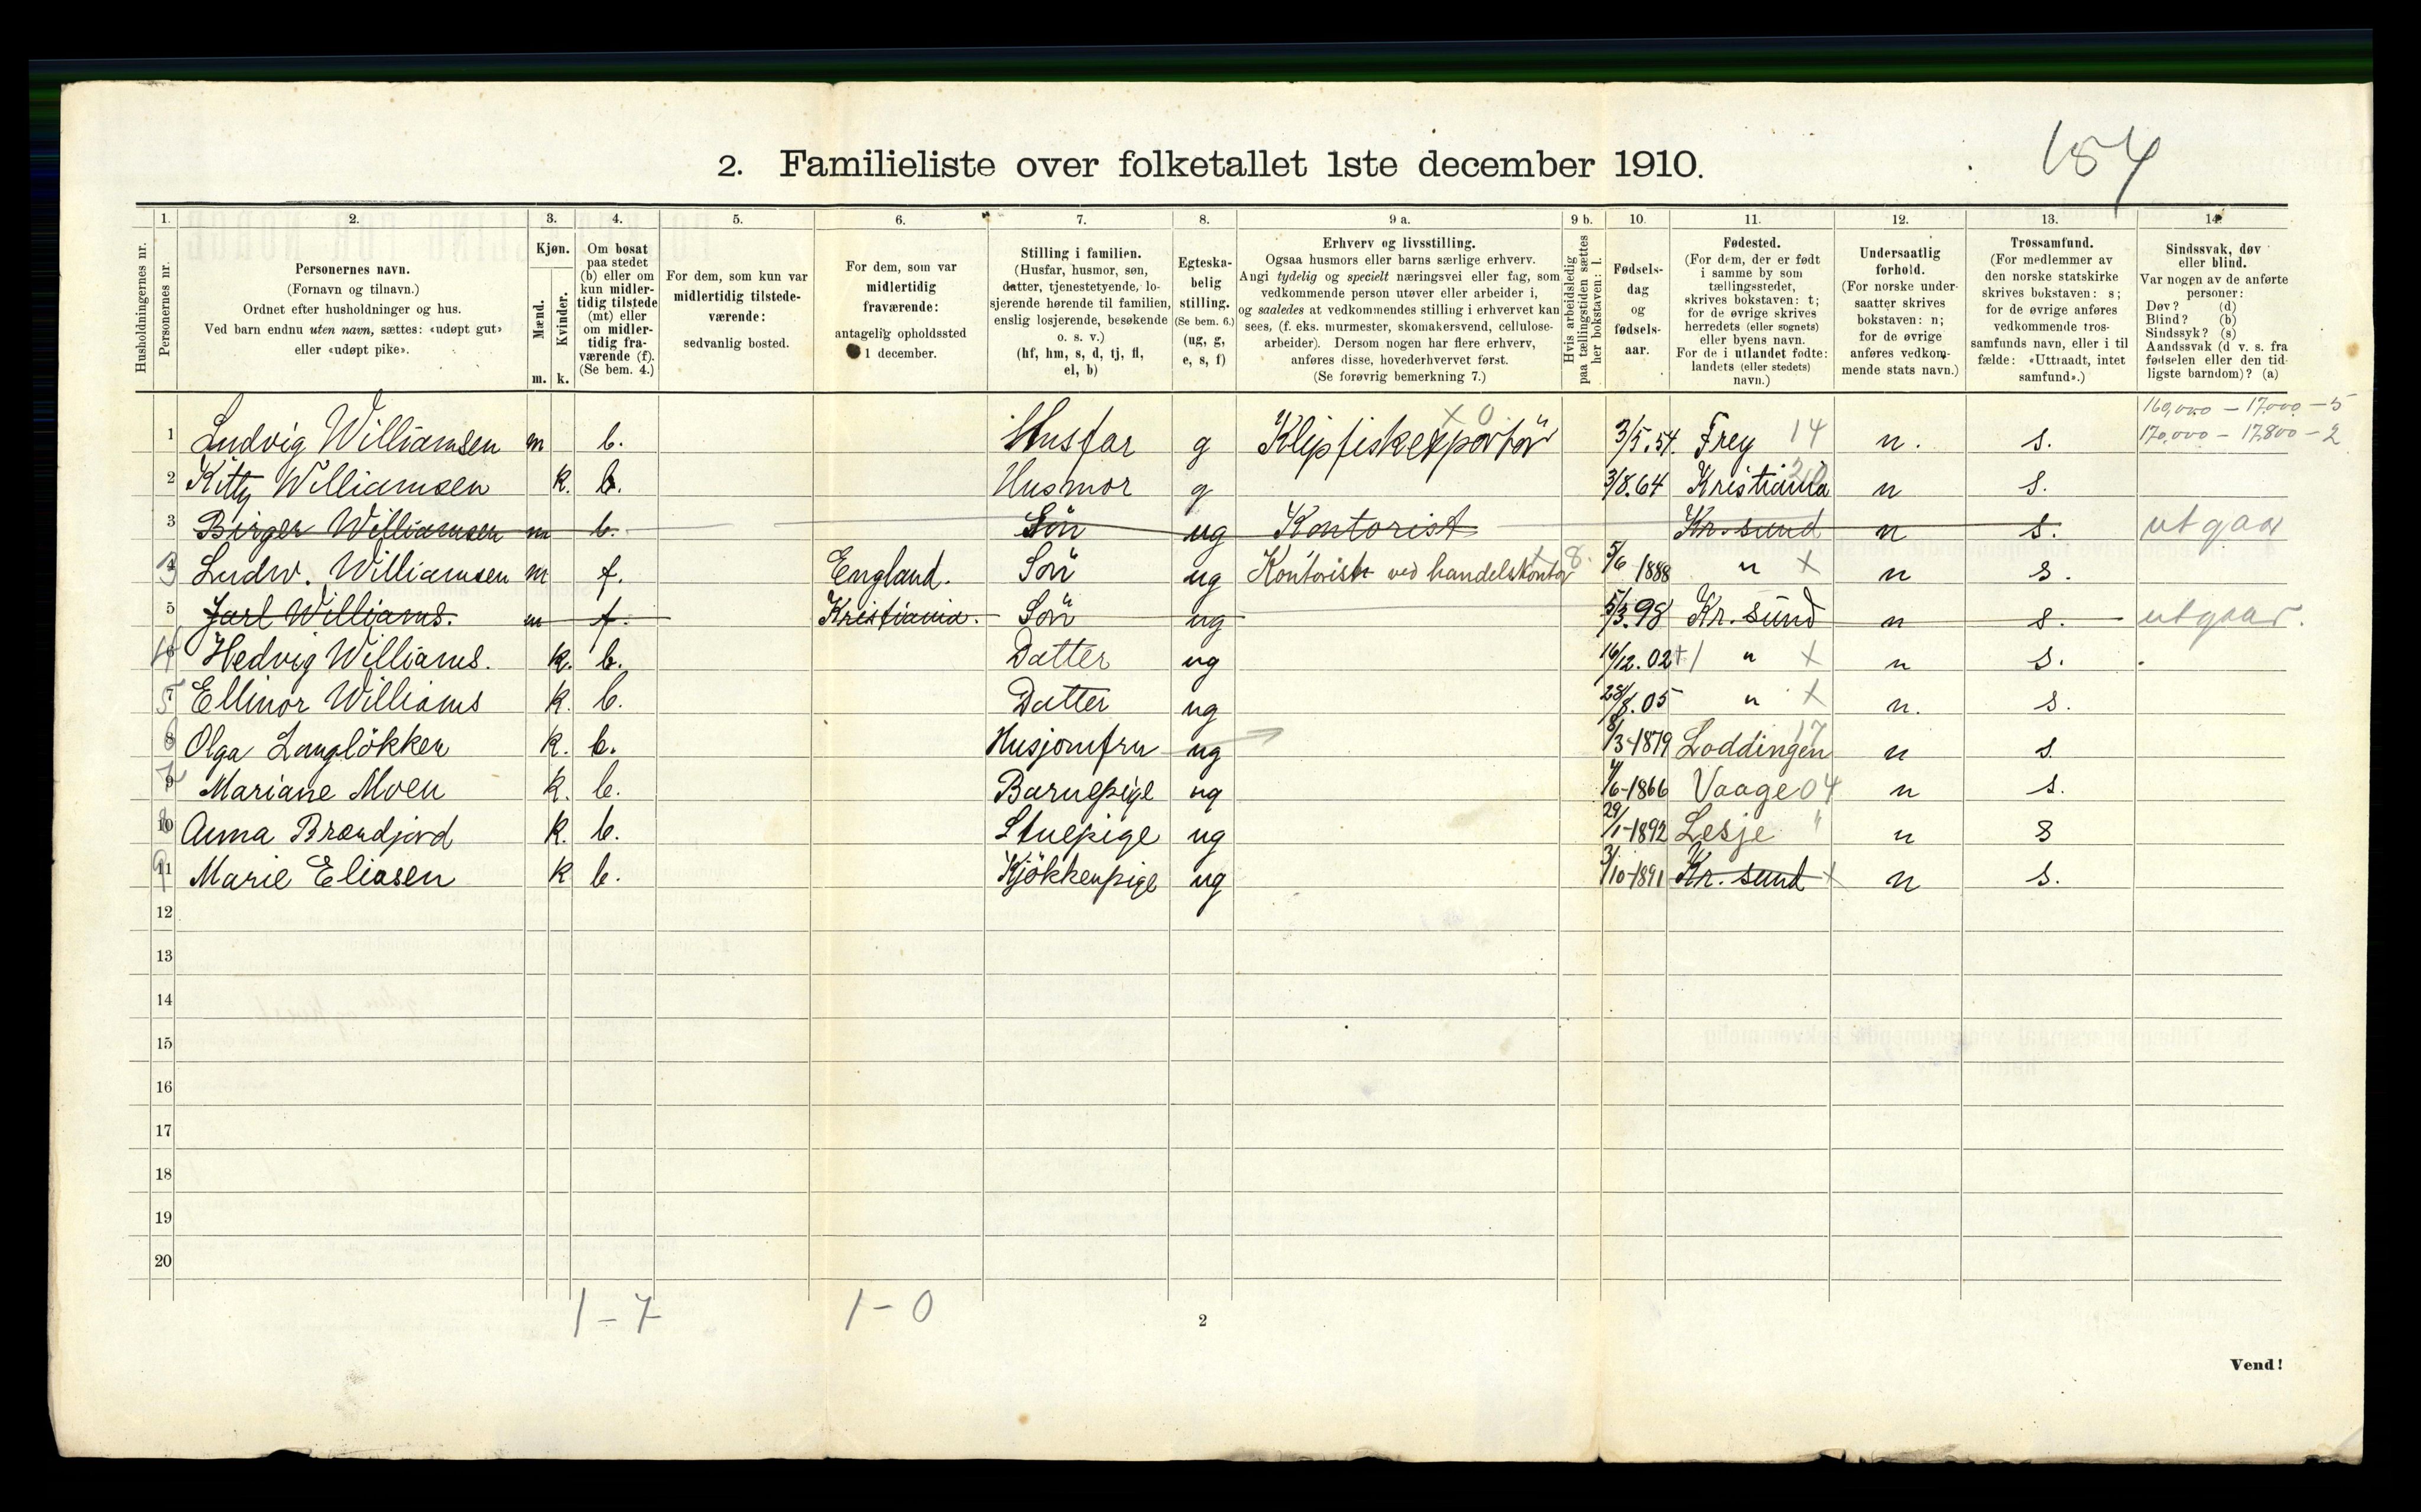 154
2. Familieliste over folketallet 1ste december 1910.
1. 2. 3. 4. 5. 6. 7. 8. 9 a. 9 b. 10. 11. 12. 13. 14.
Husholdningernes nr.
Personernes nr.
Personernes navn.
(Fornavn og tilnavn.)
Ordnet efter husholdninger og hus.
Ved barn endnu uten navn, sættes: «udøpt gut»
eller «udøpt pike».
Kjøn.
Mænd.
Kvinder.
m. k.
Om bosat
paa stedet
(b) eller om
kun midler-
tidig tilstede
(mt) eller
om midler-
tidig fra-
værende (f).
(Se bem. 4.)
For dem, som kun var
midlertidig tilstede-
værende:
sedvanlig bosted.
For dem, som var
midlertidig
fraværende:
antagelig opholdssted
1 december.
Stilling i familien.
(Husfar, husmor, søn,
datter, tjenestetyende, lo-
sjerende hørende til familien,
enslig losjerende, besøkende
o. s. v.)
(hf, hm, s, d, tj, fl,
el, b)
Egteska-
belig
stilling.
(Se bem. 6.)
(ug, g,
e, s, f)
Erhverv og livsstilling.
Ogsaa husmors eller barns særlige erhverv.
Angi tydelig og specielt næringsvei eller fag, som
vedkommende person utøver eller arbeider i,
og saaledes at vedkommendes stilling i erhvervet kan
sees, (f. eks. murmester, skomakersvend, cellulose-
arbeider). Dersom nogen har flere erhverv,
anføres disse, hovederhvervet først.
(Se forøvrig bemerkning 7.)
Hvis arbeidsledig
paa tællingstiden sættes
her bokstaven: l.
Fødsels-
dag
og
fødsels-
aar.
Fødested.
(For dem, der er født
i samme by som
tællingsstedet,
skrives bokstaven: t;
for de øvrige skrives
herredets (eller sognets)
eller byens navn.
For de i utlandet fødte:
landets (eller stedets)
navn.)
Undersaatlig
forhold.
(For norske under-
saatter skrives
bokstaven: n;
for de øvrige
anføres vedkom-
mende stats navn.)
Trossamfund.
(For medlemmer av
den norske statskirke
skrives bokstaven: s;
for de øvrige anføres
vedkommende tros-
samfunds navn, eller i til
fælde: «Uttraadt, intet
samfund».)
Sindssvak, døv
eller blind.
Var nogen av de anførte
personer:
Døv? (d)
Blind? (b)
Sindssyk? (s)
Aandssvak (d v. s. fra
fødselen eller den tid-
ligste barndom)? (a)
160,000 – 17,000 – 5
170,000 – 17,800 – 2
1 Ludvig Williamsen m b. Husfar g Klipfiskexportör x 0 3/5.54. Frey 14 n. s.
2 Kitty Williamsen k. b. Husmor g 3/8.64 Kristiania 20 n s.
3 Birger Williamsen m b. Sön ug Kontorist Kr. sund n s. utgaar
4 3 Ludw. Williamsen m f. England. Sön ug Kontorist ved handelskontor x 8. 5/6 1888 " x n s.
5 Jarl Williams. m f. Kristiania. Sön ug 5/3.98 Kr. sund n s. utgaar.
6 4 Hedvig Williams. k. b. Datter ug 16/12.02 " x n s.
7 5 Ellinor Williams k. b. Datter ug 28/8.05 " x n. s.
8 6 Olga Langlökken k. b. Husjomfru ug 8/3-1879 Loddingen 17 n s.
9 7 Mariane Moen k. b. Barnepige ug 4/6-1866 Vaage 04 n s.
10 8 Anna Brændjord k. b. Stuepige ug 29/1-1892 Lesje " n s
11 9 Marie Eliasen k b. Kjökkenpige ug 3/10-1891 Kr. sund x n s.
12
13
14
15
16
17
18
19
20
1 – 7 1 – 0
2
Vend!